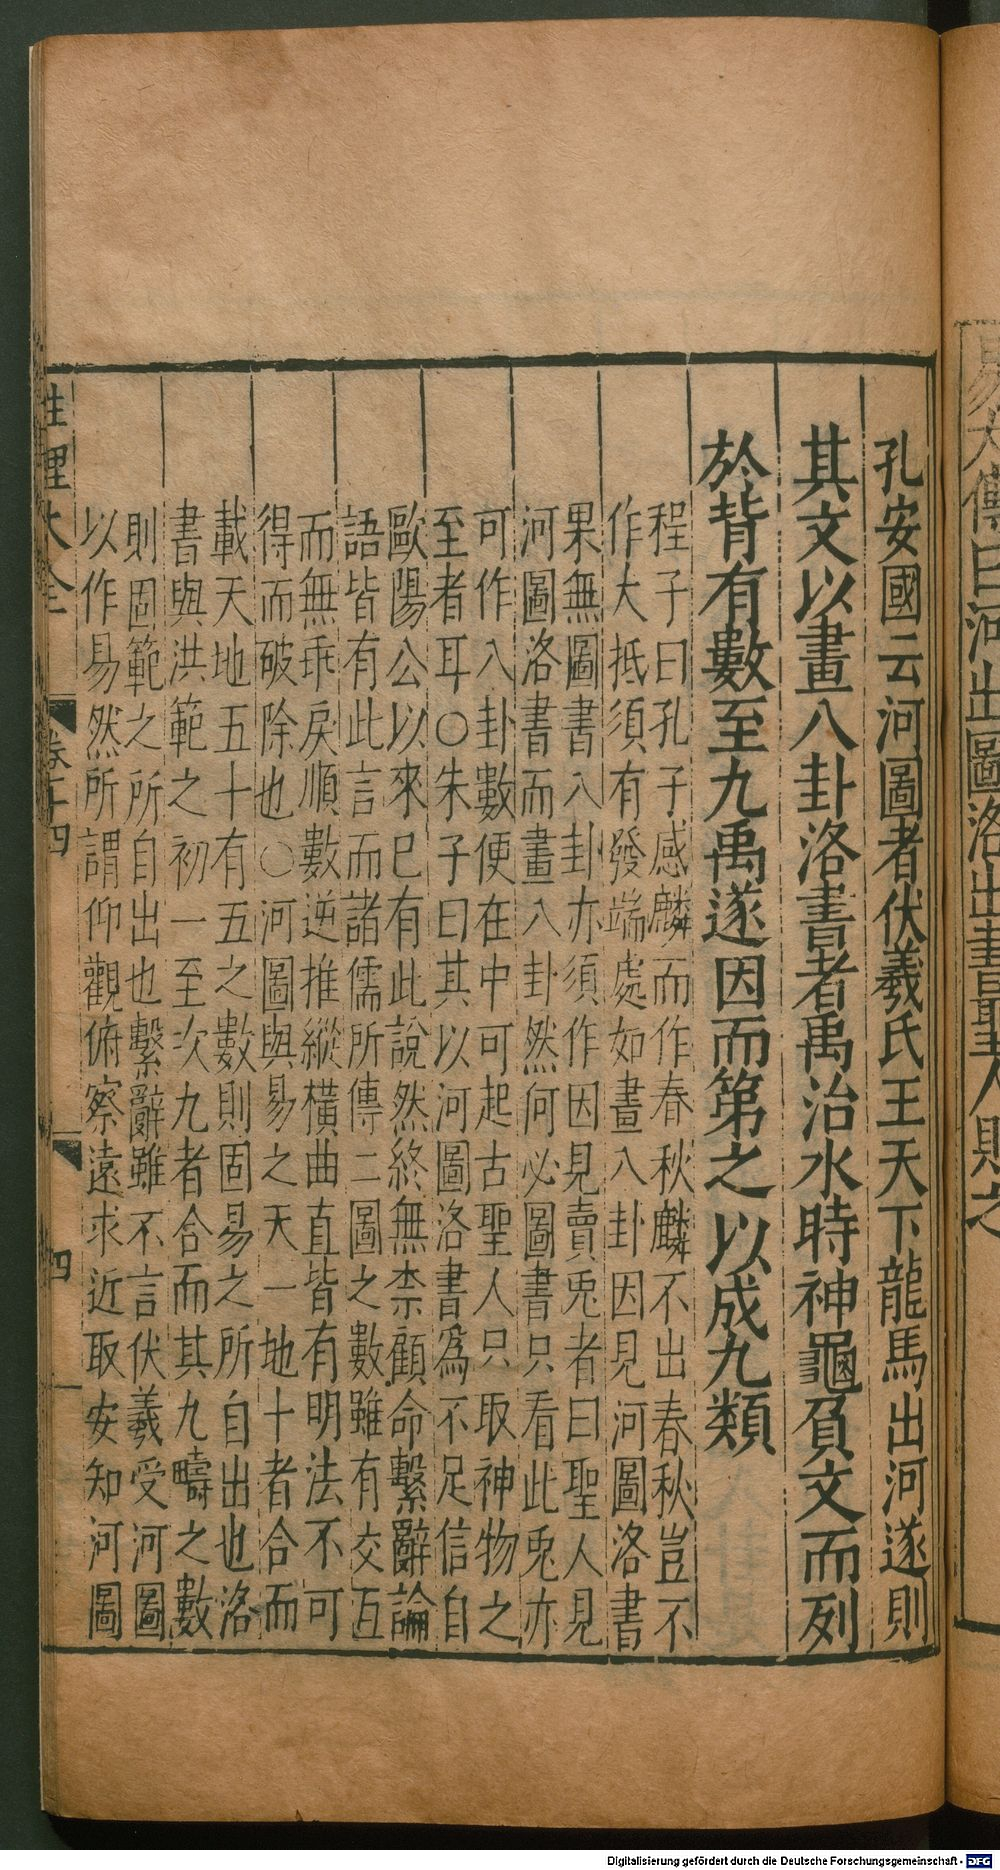 易大傳曰河出圖洛出書聖人則之
孔安國云河圖者伏羲氏王天下龍馬出河遂則
其文以畫八卦洛書者禹治水時神龜負文而列
於背有數至九禹遂因而第之以成九類
程子曰孔子感麟而作春秋麟不出春秋豈不
作大抵須有發端處如畫八卦因見河圖洛書
果無圖書八卦亦須作因見賣兎者曰聖人見
河圖洛書而畫八卦然何必圖書只看此兎亦
可作八卦數便在中可起古聖人只取神物之
至者耳○朱子曰其以河圖洛書爲不足信自
歐陽公以來已有此說然終無柰顧命繫辭論
語皆有此言而諸儒所傳二圖之數雖有交互
而無乖戾順數逆推縱橫曲直皆有明法不可
得而破除也○河圖與易之天一地十者合而
載天地五十有五之數則固易之所自出也洛
書與洪範之初一至次九者合而其九疇之數
則固範之所自出也繫辭雖不言伏羲受河圖
以作易然所謂仰觀俯察遠求近取安知河圖
性理大全 卷十四 四
Digitalisierung gefördert durch die Deutsche Forschungsgemeinschaft - DFG